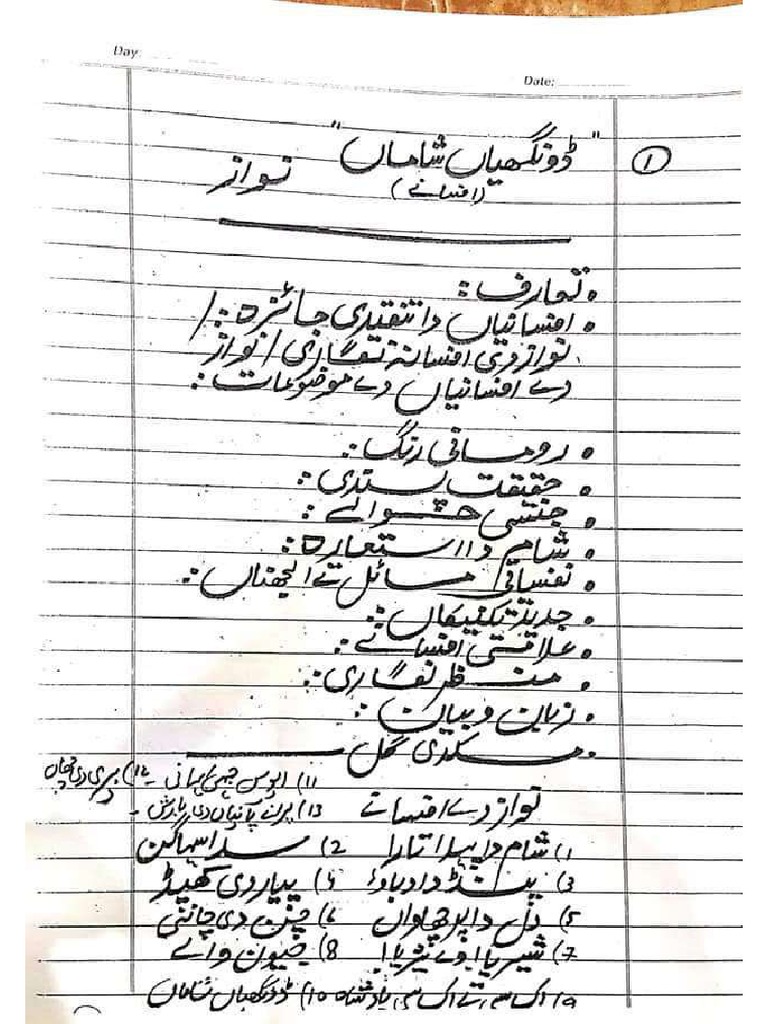 Day:
Date:
① "ڈونگھیاں شاماں"
(افسانے) نواز
• تعارف:
• افسانیاں دا تنقیدی جائزہ: /
نواز دی افسانہ نگاری / نواز
دے افسانیاں دے موضوعات:
• رومانی رنگ:
• حقیقت پسندی:
• جنسی حوالے:
• شام دا استعارہ:
• نفسیاتی مسائل تے الجھناں:
• جدید تکنیکاں:
• علامتی افسانے:
• منظر نگاری:
• زبان و بیان:
• مکدی گل
11) جیہی کہانی 12) بیری دی چھاں
نواز دے افسانے 13) پرانے پانیاں دی بارش
1) شام دا پہلا تارا 2) سدا سہاگن
3) پنڈ دا دباؤ 4) پیار دی کھیڈ
5) دل دا پرچھاواں 6) چن دی چاننی
7) شیریا اوے شیریا! 8) جیون والے
9) اک سی تے اک سی بادشاہ 10) ڈونگھیاں شاماں